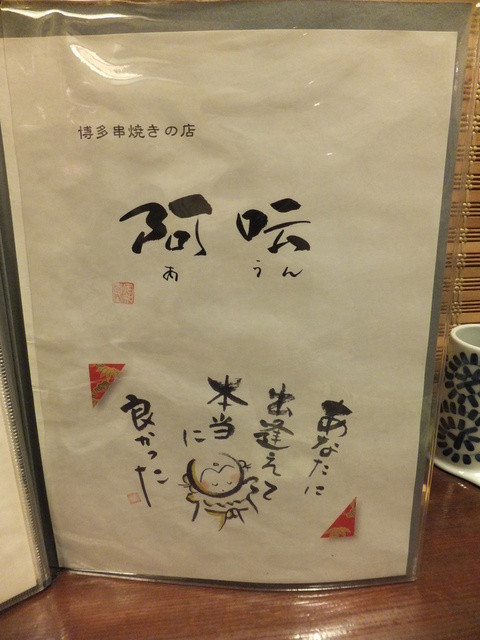 博多串焼きの店
阿吽
あ うん
あなたに
出逢えて
本当に
良かった